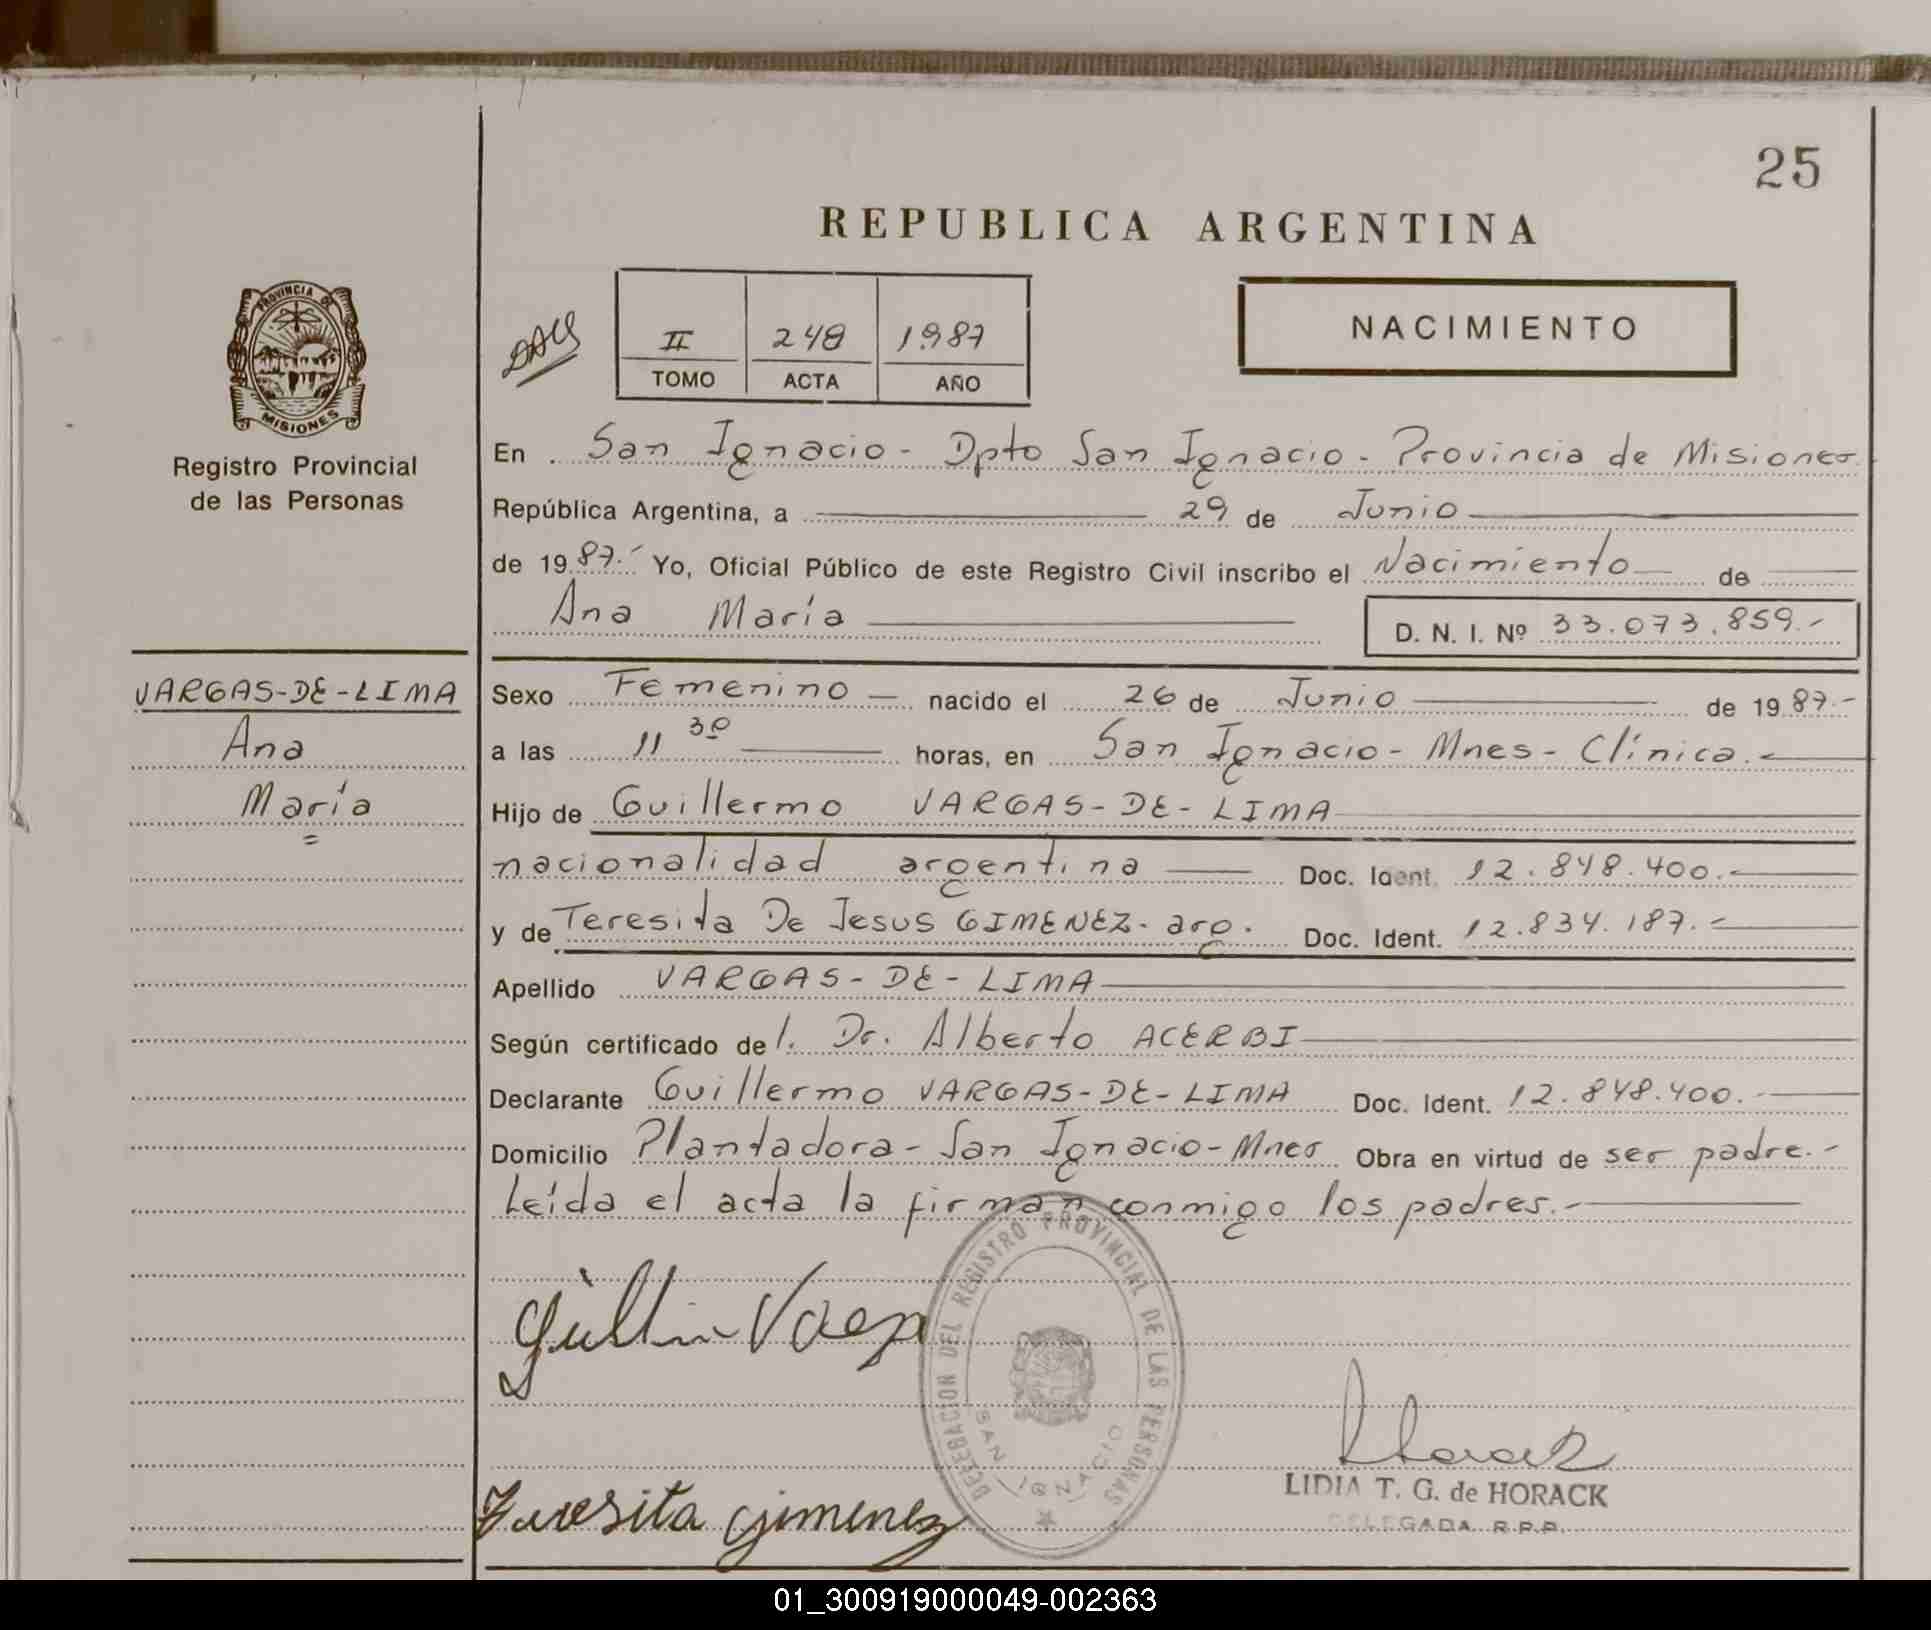 25
REPUBLICA ARGENTINA
PROVINCIA DE
MISIONES
Registro Provincial
de las Personas
II 248 1987
TOMO ACTA AÑO
NACIMIENTO
En San Ignacio - Dpto San Ignacio - Provincia de Misiones
República Argentina, a 29 de Junio
de 1987.- Yo, Oficial Público de este Registro Civil inscribo el Nacimiento de
Ana María D. N. I. Nº 33.073.859.-
VARGAS-DE-LIMA
Ana
María
Sexo Femenino nacido el 26 de Junio de 1987.-
a las 11 30 horas, en San Ignacio - Mnes - Clínica.-
Hijo de Guillermo VARGAS-DE-LIMA
nacionalidad argentina Doc. Ident. 12.848.400.-
y de Teresita De Jesus GIMENEZ - arg. Doc. Ident. 12.834.187.-
Apellido VARGAS-DE-LIMA
Según certificado del. Dr. Alberto ACERBI
Declarante Guillermo VARGAS-DE-LIMA Doc. Ident. 12.848.400.-
Domicilio Plantadora - San Ignacio - Mnes Obra en virtud de ser padre.-
Leída el acta la firman conmigo los padres.-
DELEGACION DEL REGISTRO PROVINCIAL DE LAS PERSONAS
SAN IGNACIO
Horack
LIDIA T. G. de HORACK
DELEGADA R.P.P.
Teresita Gimenez
01_300919000049-002363